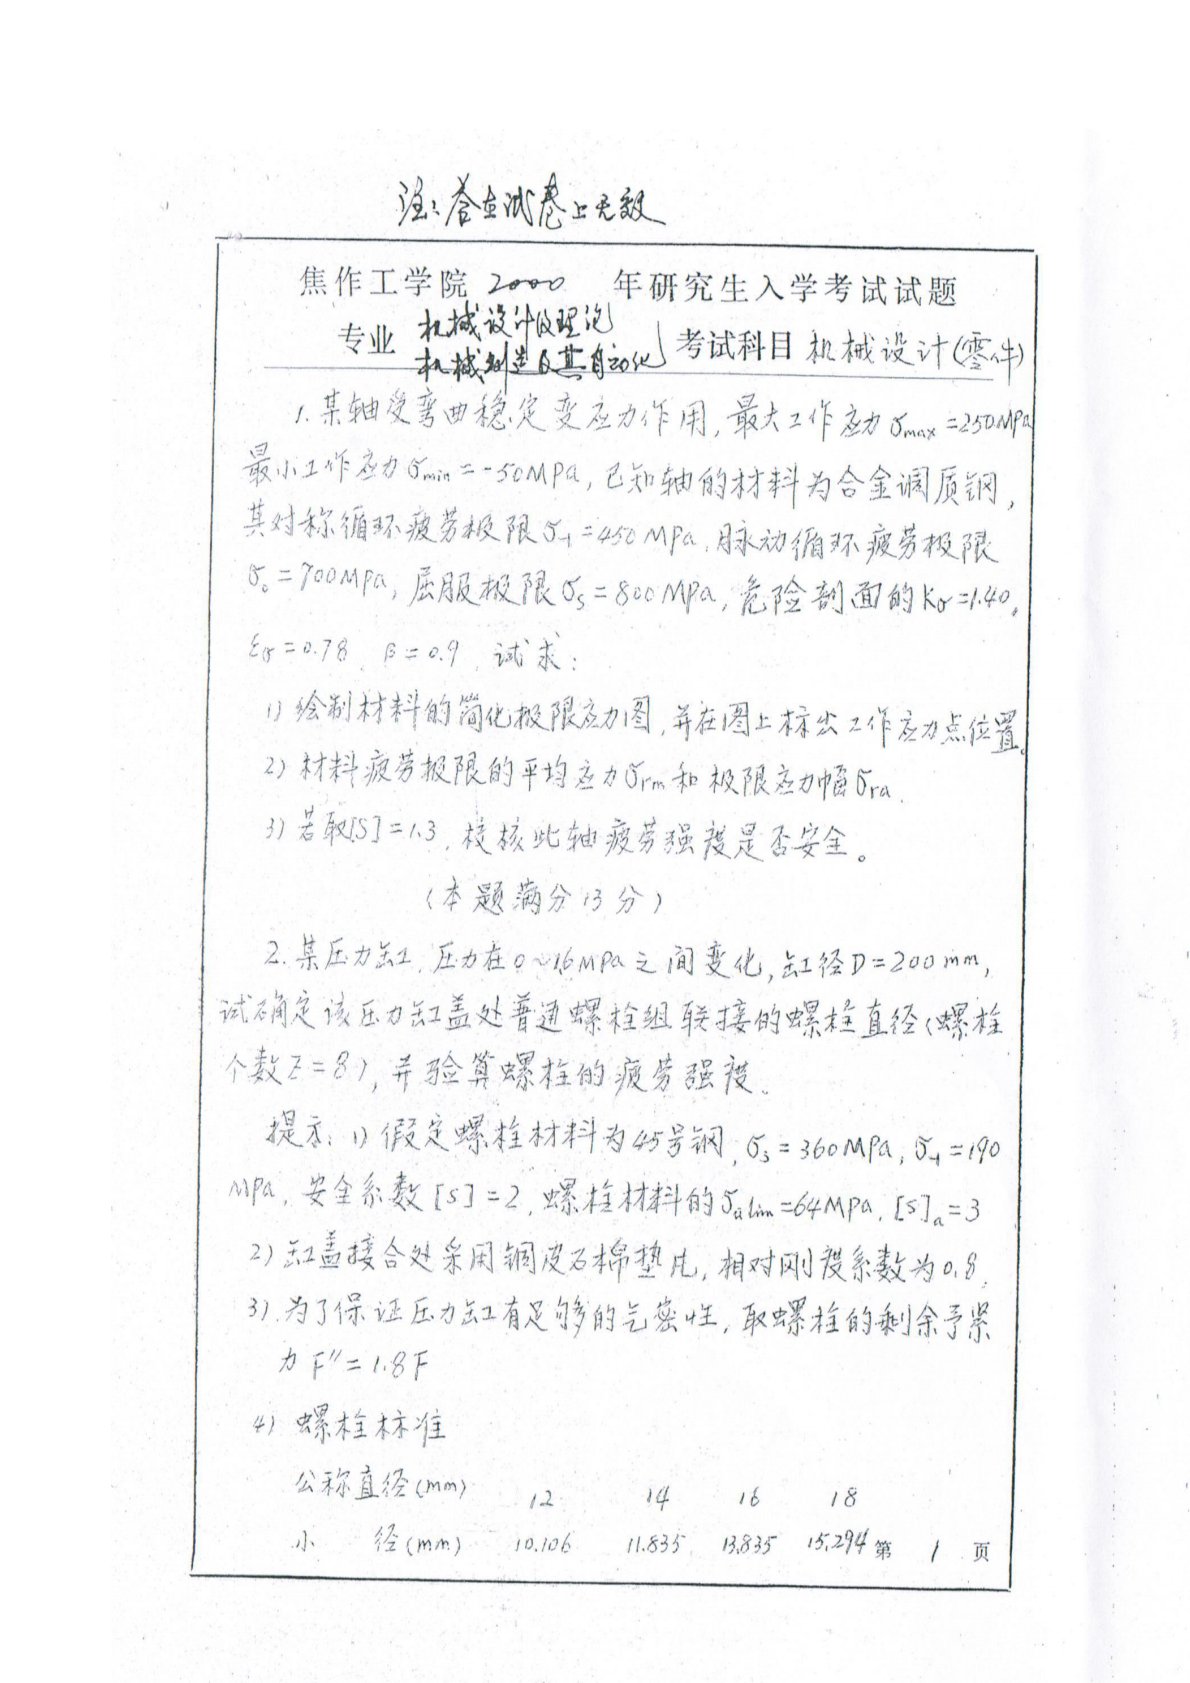 注：答在试卷上无效
焦作工学院 2000 年研究生入学考试试题
专业 机械设计及理论
机械制造及其自动化 考试科目 机械设计(零件)
1. 某轴受弯曲稳定变应力作用, 最大工作应力 σmax =250MPa
最小工作应力 σmin = -50MPa, 已知轴的材料为合金调质钢,
其对称循环疲劳极限 σ-1 =450 MPa, 脉动循环疲劳极限
σ0 =700MPa, 屈服极限 σs =800 MPa, 危险剖面的 Kσ =1.40,
εσ =0.78, β=0.9, 试求:
1) 绘制材料的简化极限应力图, 并在图上标出工作应力点位置。
2) 材料疲劳极限的平均应力 σrm 和极限应力幅 σra.
3) 若取[S]=1.3, 校核此轴疲劳强度是否安全。
(本题满分13分)
2. 某压力缸, 压力在 0~1.6MPa 之间变化, 缸径 D=200mm,
试确定该压力缸盖处普通螺栓组联接的螺栓直径(螺栓
个数 Z=8), 并验算螺栓的疲劳强度。
提示: 1) 假定螺栓材料为45号钢, σs =360MPa, σ-1 =190
MPa, 安全系数[S]=2, 螺栓材料的 σa lim =64MPa, [S]a =3
2) 缸盖接合处采用铜皮石棉垫片, 相对刚度系数为0.8,
3) 为了保证压力缸有足够的气密性, 取螺栓的剩余予紧
力 F″=1.8F
4) 螺栓标准
公称直径(mm) 12 14 16 18
小 径(mm) 10.106 11.835 13.835 15.294 第 1 页